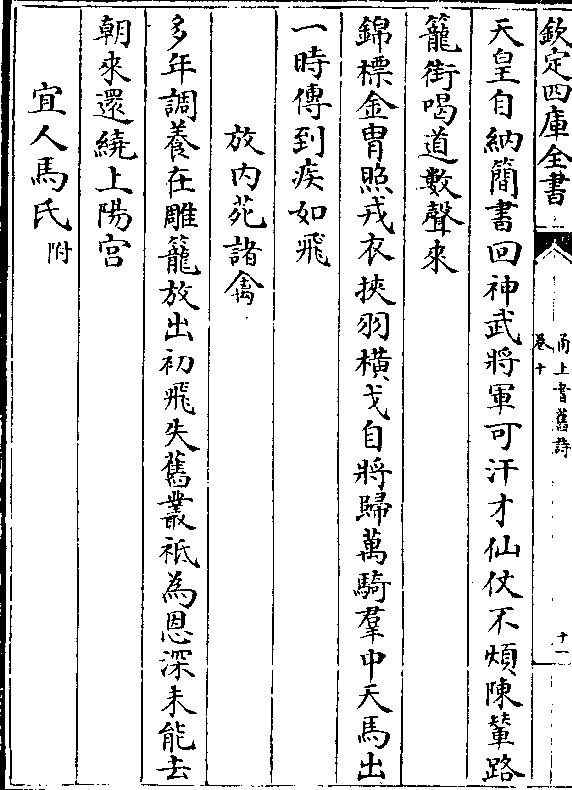 欽定四庫全書
甬上耆舊詩
卷十
十一
天皇自納簡書回神武將軍可汗才仙仗不煩陳輦路
籠街喝道數聲來
錦標金胄照戎衣挾羽橫戈自將歸萬騎羣中天馬出
一時傳到疾如飛
放内苑諸禽
多年調養在雕籠放出初飛失舊叢祗為恩深未能去
朝來還繞上陽宮
宜人馬氏附